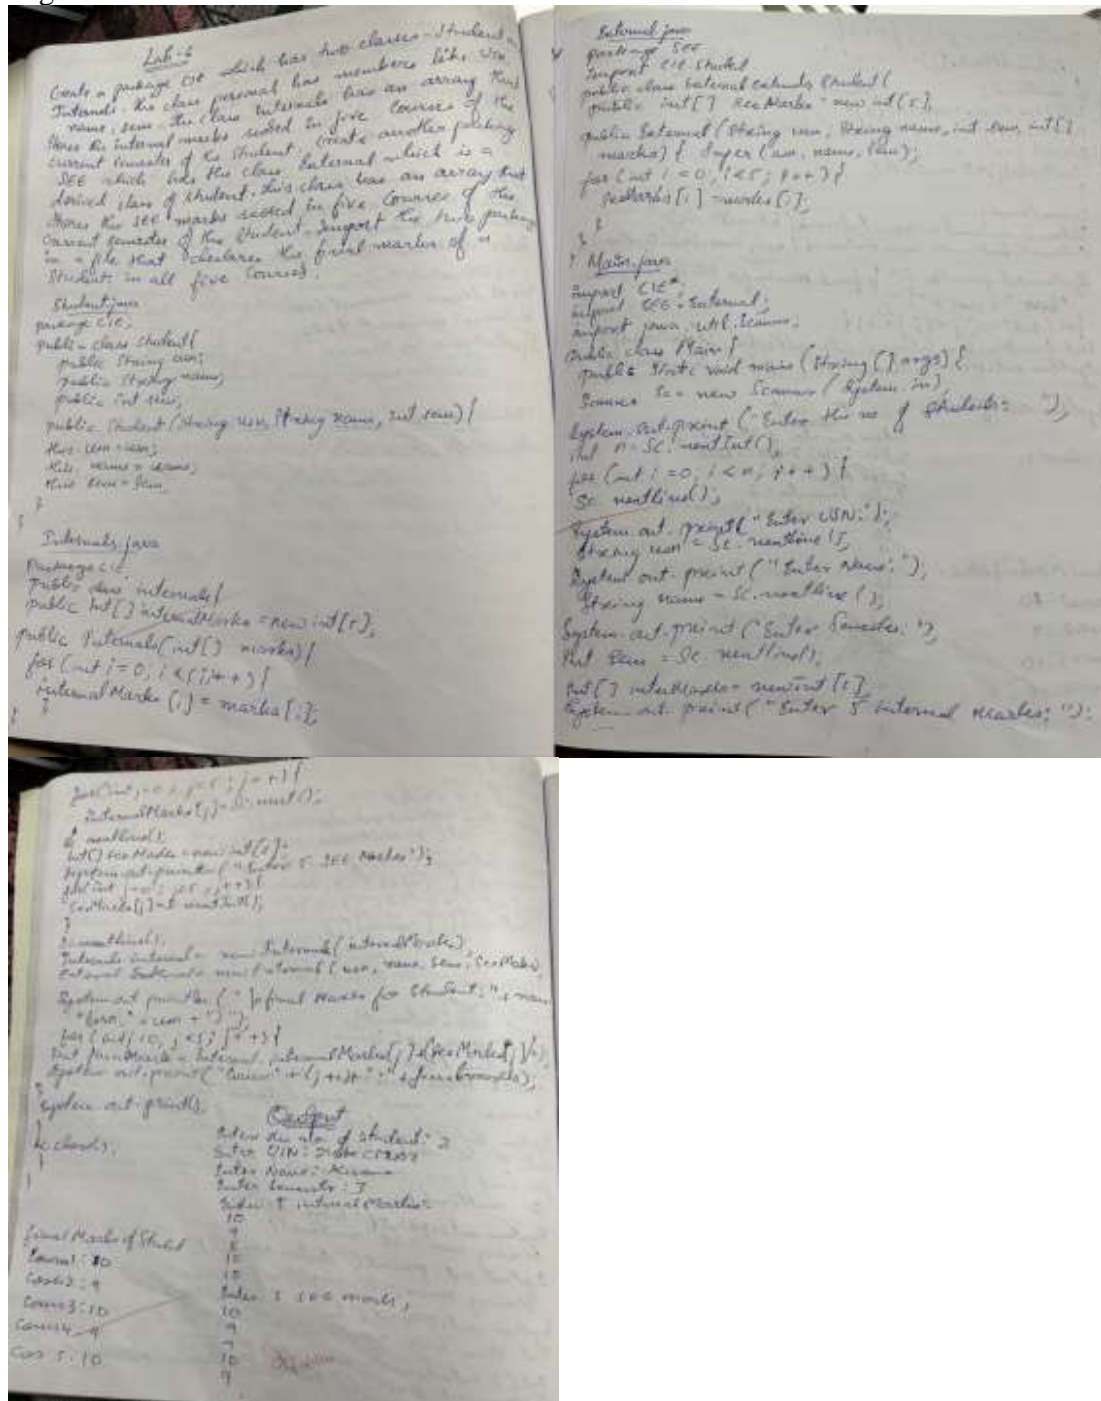 Lab-6
Create a package CIE which has two classes - Student &
Internals. the class personal has members like usn
name, sem. the class internals has an array that
stores the internal marks scored in five courses of the
current semester of the student. Create another package
SEE which has the class External which is a
derived class of student. this class has an array that
stores the SEE marks scored in five courses of the
current semester of the student. Import the two package
in a file that declares the final marks of n
students in all five courses.
Student.java
package CIE;
public class Student{
public String usn;
public String name;
public int sem;
public Student (String usn, String name, int sem) {
this.usn = usn;
this.name = name;
this.sem = sem
}
}
Internals.java
Package CIE
public class internals{
public int[] internalMarks = new int[5];
public Internals(int[] marks){
for (int i=0; i<5; i++) {
internalMarks [i] = marks[i];
}
}
External.java
package SEE
Import CIE.Student
public class External extends Student {
public int[] seeMarks = new int[5];
public External (String usn, String name, int sem, int[]
marks) { Super (usn, name, sem);
for (int i = 0; i<5; i++) {
seeMarks [i] = marks [i];
}
}
}
Main.java
import CIE*
import SEE.External;
import java.util.Scanner;
public class Main {
public static void main (String [] args) {
Scanner Sc = new Scanner (System.in)
System.out.print ("Enter the no of students: ");
int n = Sc.nextInt();
for (int i = 0; i < n; i++) {
Sc.nextline();
System.out.print("Enter USN:");
String usn = Sc.nextline();
System out.print ("Enter Name: ");
String name = Sc.nextline ();
System.out.print ("Enter Semester: ");
int Sem = Sc.nextline();
int[] = new int [5];
System.out.print ("Enter 5 internal marks: "):
for(int j=0; j<5; j++) {
internalMarks[j] =
nextline();
int[] seeMarks = new int[5];
System.out.println ("Enter 5 SEE Marks");
for int j=0; j<5; j++) {
seeMarks[j] = nextInt();
}
nextline();
Internals internal = new Internals( internalMarks)
External = new External ( usn, name, sem, seeMarks
System.out.println ( final marks for Student: " + name
+ usn + ");
for ( int j=0; j<5; j++) {
System out.print( "Course" + (j+1)+ ":" +
}
System.out.println
}
Sc.close();
}
}
Output
Enter the no. of student: 2
Enter USN:
Enter Name:
Enter Semester: 3
Enter 5 internal Marks:
10
9
8
10
10
Enter 5 SEE marks;
10
9
10
9
final Marks of Student
Course1: 10
Course2: 9
Course3: 10
Course4 9
Cos 5: 10